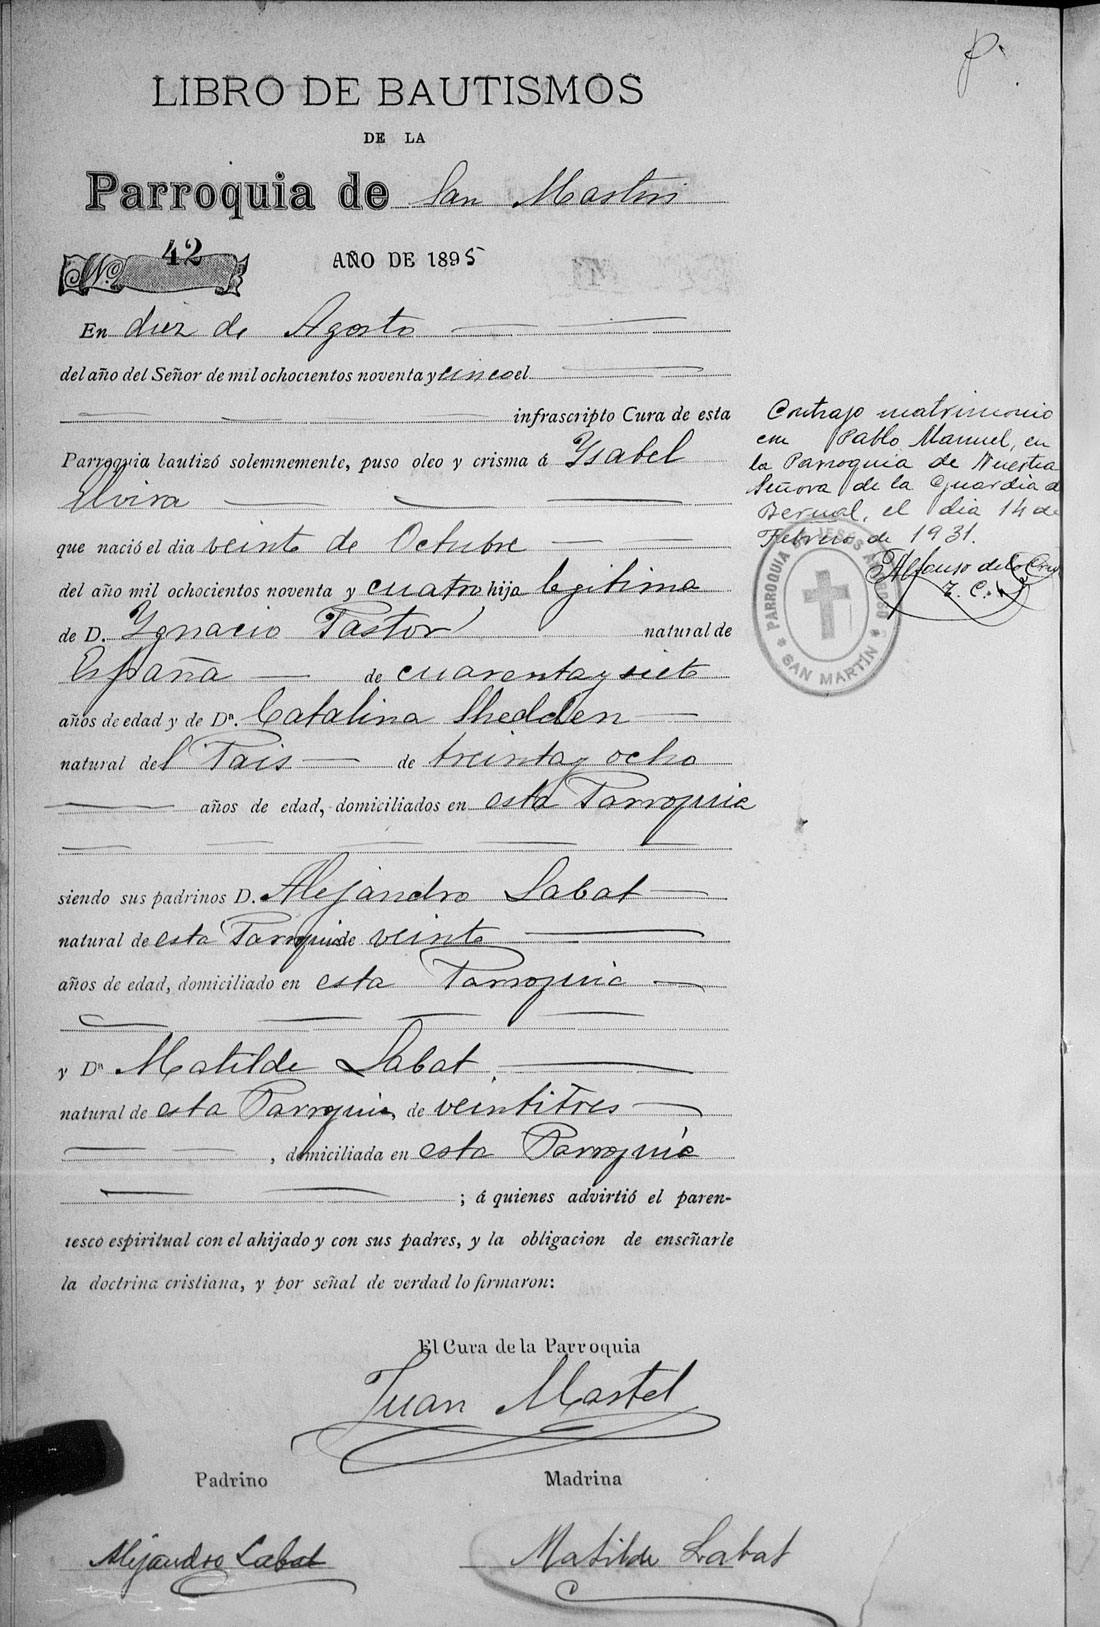 LIBRO DE BAUTISMOS
DE LA
Parroquia de San Martin
No. 42 AÑO DE 1895
En diez de Agosto
del año del Señor de mil ochocientos noventa y cinco el
infrascripto Cura de esta
Parroquia bautizó solemnemente, puso oleo y crisma á Ysabel
Elvira
que nació el dia veinte de Octubre
del año mil ochocientos noventa y cuatro hija legitima
de D. Ygnacio Pastor natural de
España de cuarenta y siete
años de edad y de Dª. Catalina Shedden
natural del Pais de treinta y ocho
años de edad, domiciliados en esta Parroquia
siendo sus padrinos D. Alejandro Labat
natural de esta Parroquia de veinte
años de edad, domiciliado en esta Parroquia
y Dª Matilde Labat.
natural de esta Parroquia de veintitres
, domiciliada en esta Parroquia
; á quienes advirtió el paren-
tesco espiritual con el ahijado y con sus padres, y la obligacion de enseñarle
la doctrina cristiana, y por señal de verdad lo firmaron:
El Cura de la Parroquia
Juan Martel
Padrino Madrina
Alejandro Labat Matilde Labat
Contrajo matrimonio
con Pablo Manuel, en
la Parroquia de Nuestra
Señora de la Guardia de
Bernal, el dia 14 de
Febrero de 1931.
Alfonso de la Cruz
T. C.
PARROQUIA DE JESUS AMOROSO
SAN MARTÍN